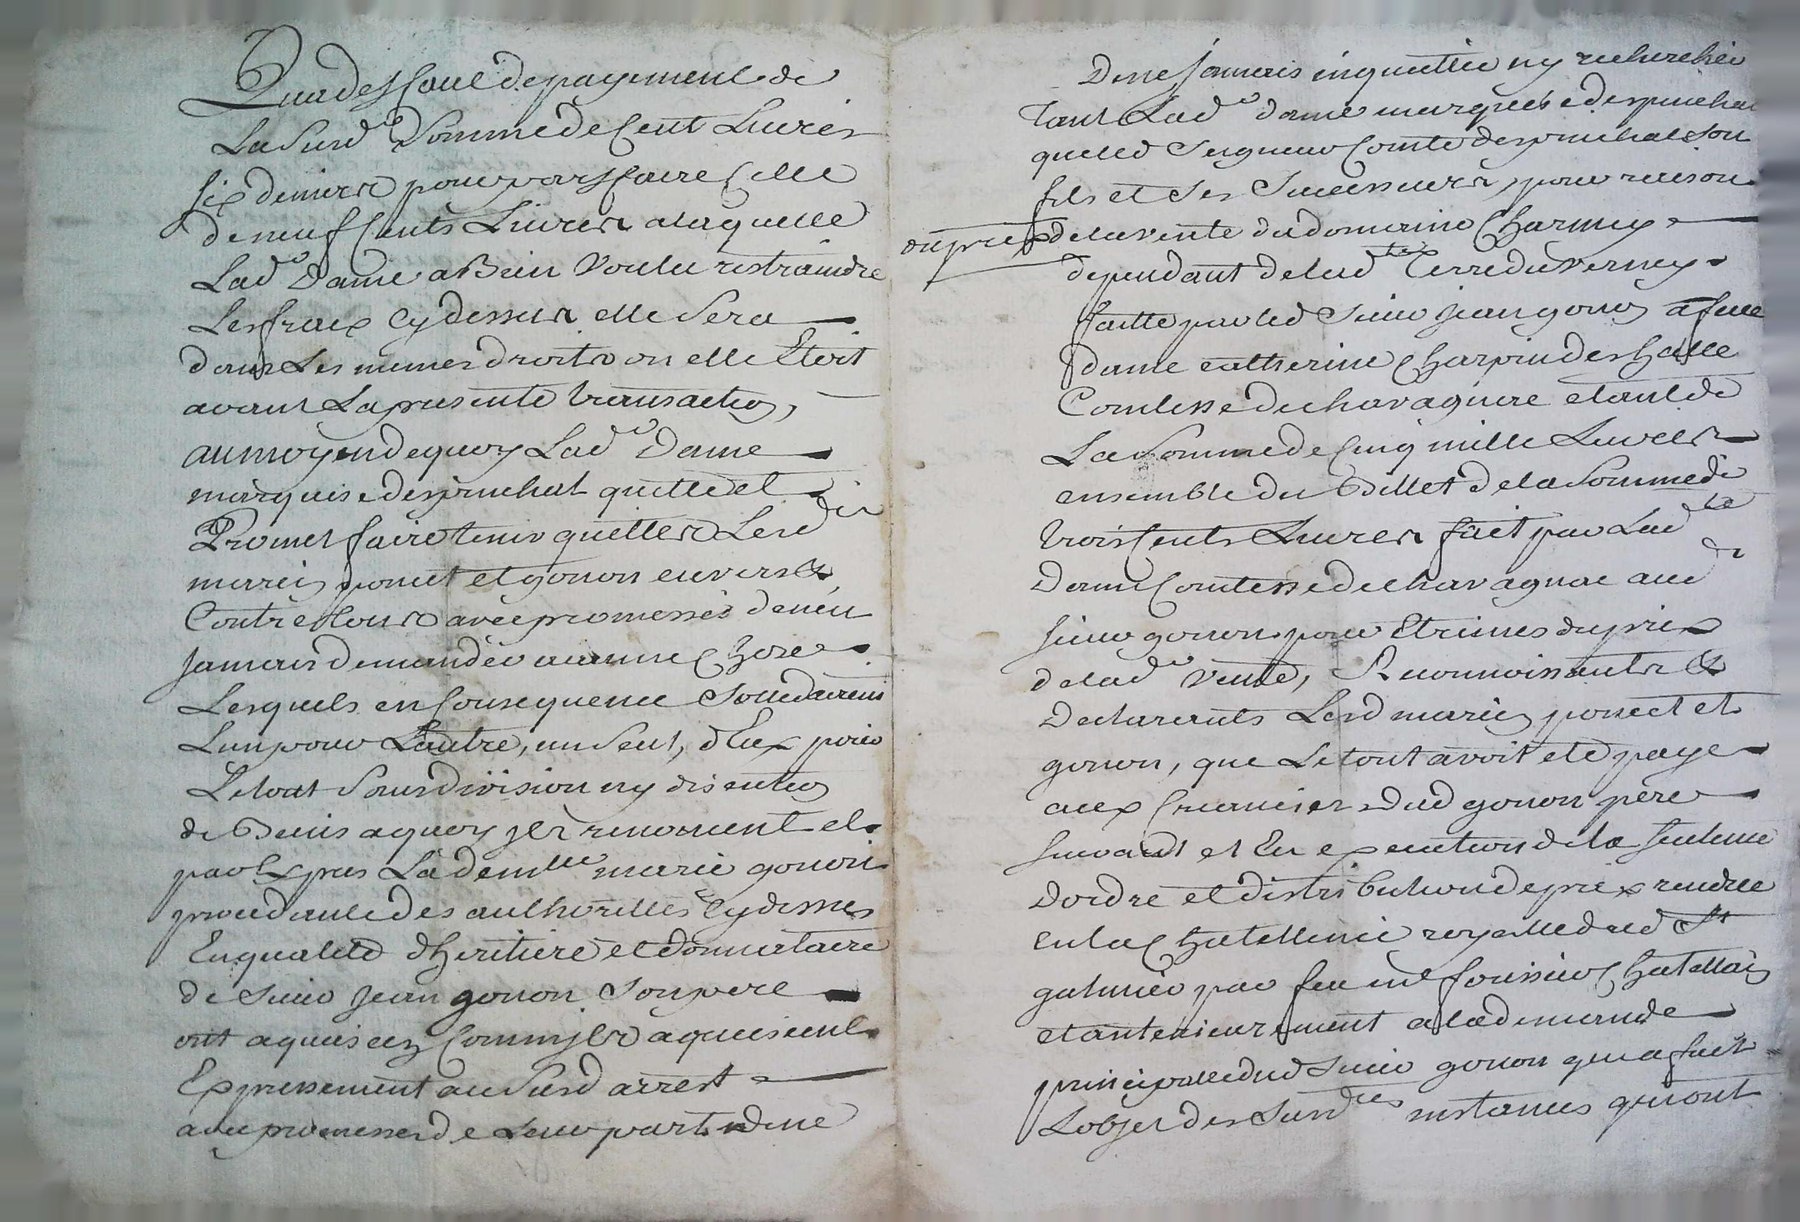 Qua deffaut de payement de
La Susde Somme de Cent Livres
six deniers pour parffaire Celle
de neuf Cents Livres a laquelle
Lade Dame a Bien Voulu restraindre
Les fraix Cy dessus elle Sera
dans Les memes droits ou elle Etoit
avant La presente transaction,
au moyen de quoy Lade Dame
marquise despinchal quitte et
Promet faire tenir quittes Lesd
mariés poncet et gonon envers &
Contre tous avec promesses de n'en
jamais demander aucune Chose
Lesquels en Consequence Sollidairemt
L'un pour L'autre, un Seul, d'Eux pour
Le tout Sans division ny discution
de Biens a quoy ils renoncent et
par Exprès La demlle marie gonon
procedante des authorités Cy dessus
En qualité d'heritiere et donnataire
de Sieur Jean gonon Son pere
ont aquiescez Comm' ils aquiescent
Expressement au Susd arrest
avec promesses de Leur part de ne
De ne jamais inquietter ny rechercher
Tant Lade dame marquise despinchal
que led Seigneur Comte despinchal Son
fils et Ses Successeurs, pour raison
du prix de la vente du domaine Charmey
dependant de lad te Terre du Verney
faitte par led Sieur jean gonon a feue
dame catherine Charpin des halle
Comtesse de chavagnac etant de
La Somme de Cinq mille Livres
ensemble du Billet de la Somme de
trois Cents Livres fait par Lad te
Dame Comtesse de chavagnac aud
sieur gonon pour Etrennes du prix
de lade vente, Reconnoissants &
Declarants Lesd mariés poncet et
gonon, que Le tout avoit eté payé
aux Creanciers dud gonon père
suivant et En execution de la sentence
dordre et distribution de prix rendue
en la Chatellenie royalle dud St
galmier par feu me foussier Chatellain
et anterieurement a la demande
principalle dud Sieur gonon qui a fait
L'objet des Susd tes instances qui ont